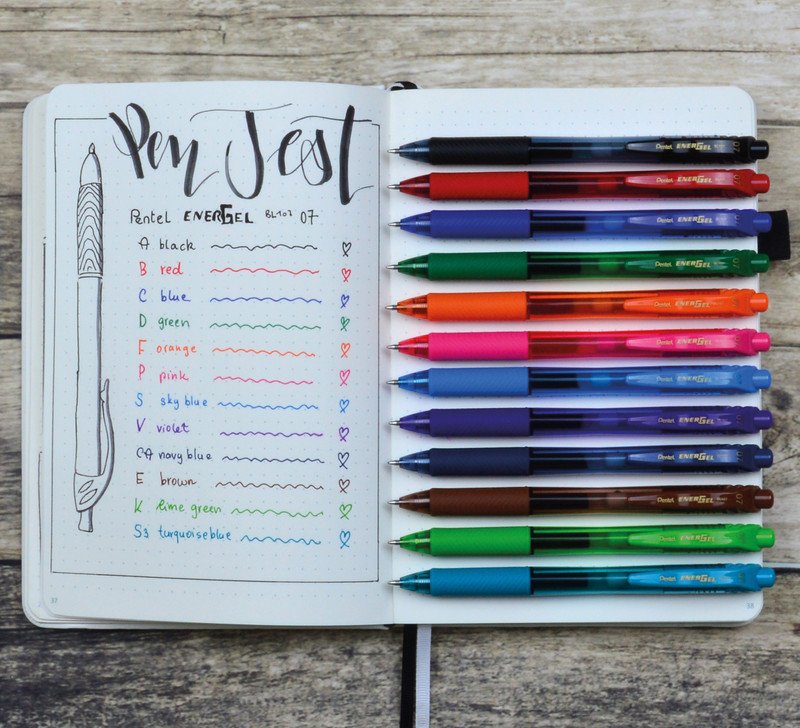 Pen Test
Pentel ENERGEL BL107 07
A black
B red
C blue
D green
F orange
P pink
S sky blue
V violet
CA navy blue
E brown
K lime green
S3 turquoise blue
37
Pentel ENERGEL BL107 07
Pentel ENERGEL 07
Pentel ENERGEL
Pentel ENERGEL
Pentel ENERGEL
Pentel ENERGEL
Pentel ENERGEL
Pentel ENERGEL
Pentel ENERGEL
Pentel ENERGEL BL107 07
Pentel ENERGEL
Pentel ENERGEL
38